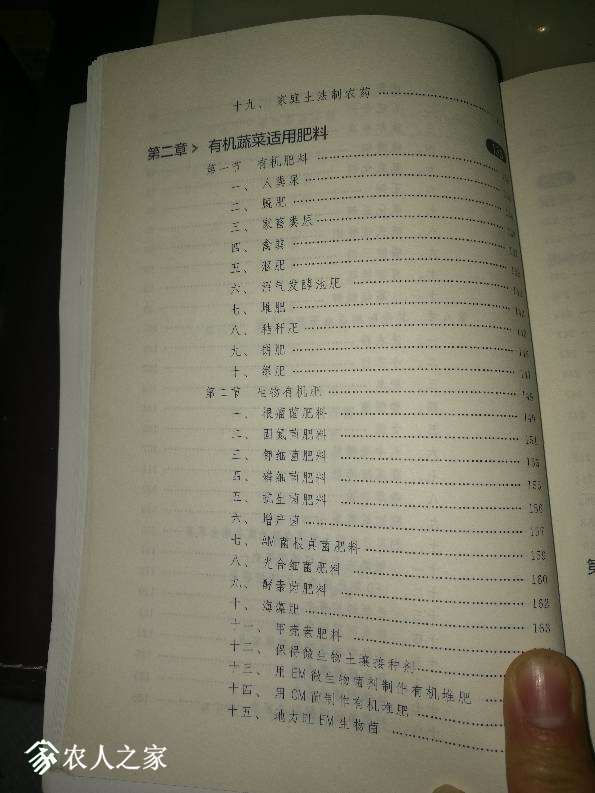 十九、家庭土法制农药
第二章 有机蔬菜适用肥料
第一节 有机肥料
一、人粪尿
二、厩肥
三、家畜粪尿
四、禽粪
五、沤肥
六、沼气发酵池肥
七、堆肥
八、秸秆肥
九、饼肥
十、绿肥
第二节 生物有机肥 148
一、根瘤菌肥料 149
二、固氮菌肥料 151
三、钾细菌肥料 155
四、磷细菌肥料 155
五、抗生菌肥料 156
六、增产菌 157
七、AM菌根真菌肥料 159
八、光合细菌肥料 160
九、酵素菌肥料 162
十、海藻肥 163
十一、甲壳素肥料
十二、保得微生物土壤接种剂
十三、用EM微生物菌剂制作有机堆肥
十四、用CM菌制作有机堆肥
十五、地力旺EM生物菌
农人之家